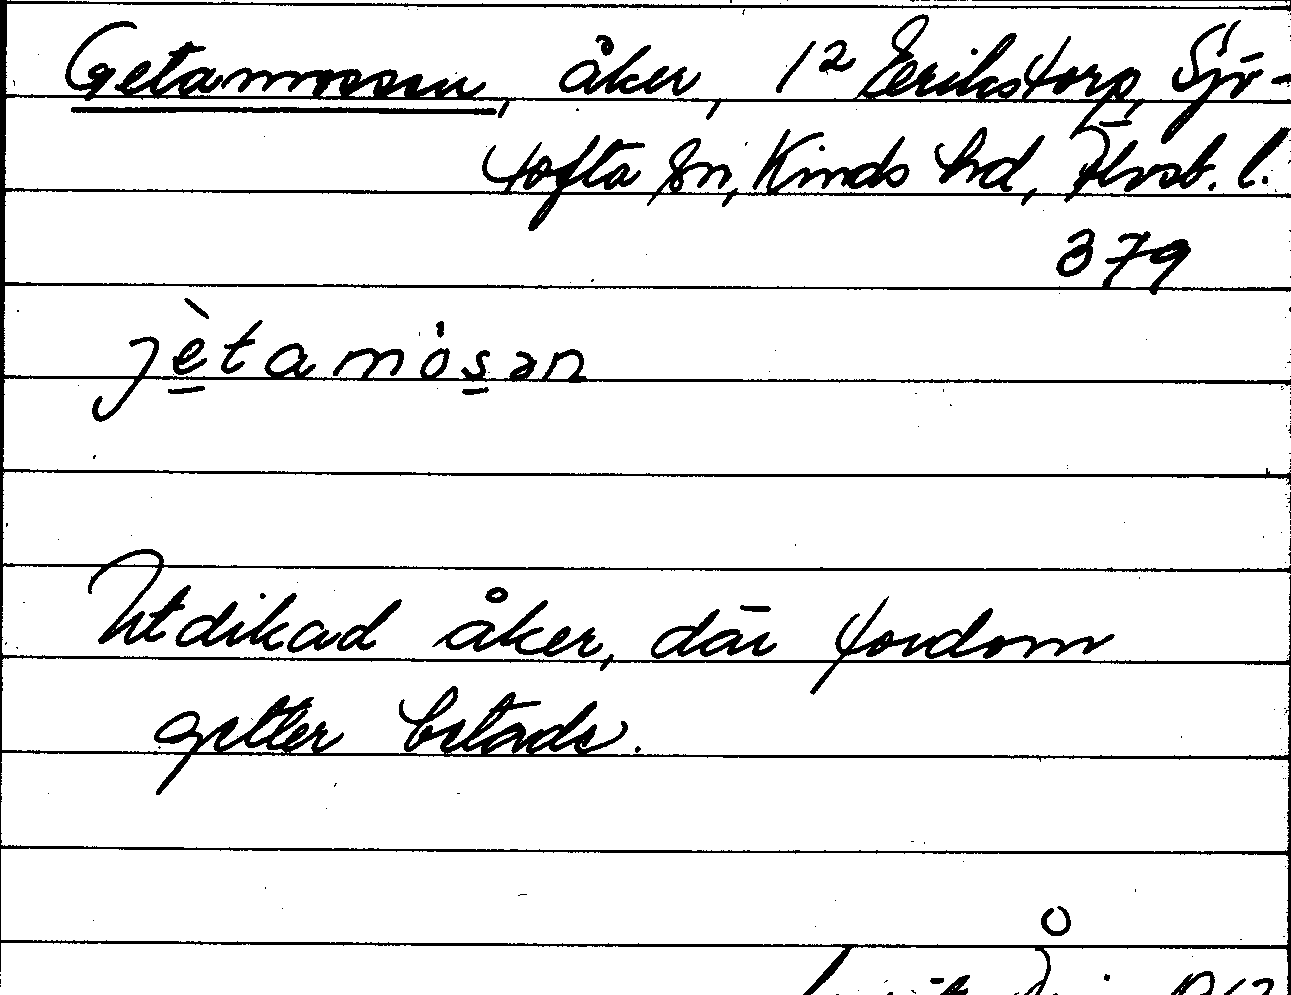 Getamossen, åker, 12 Erikstorp, Sjö-
tofta sn, Kinds hd, Älvsb. l.
379
jètamósən
Utdikad åker, där fordom
getter betade.